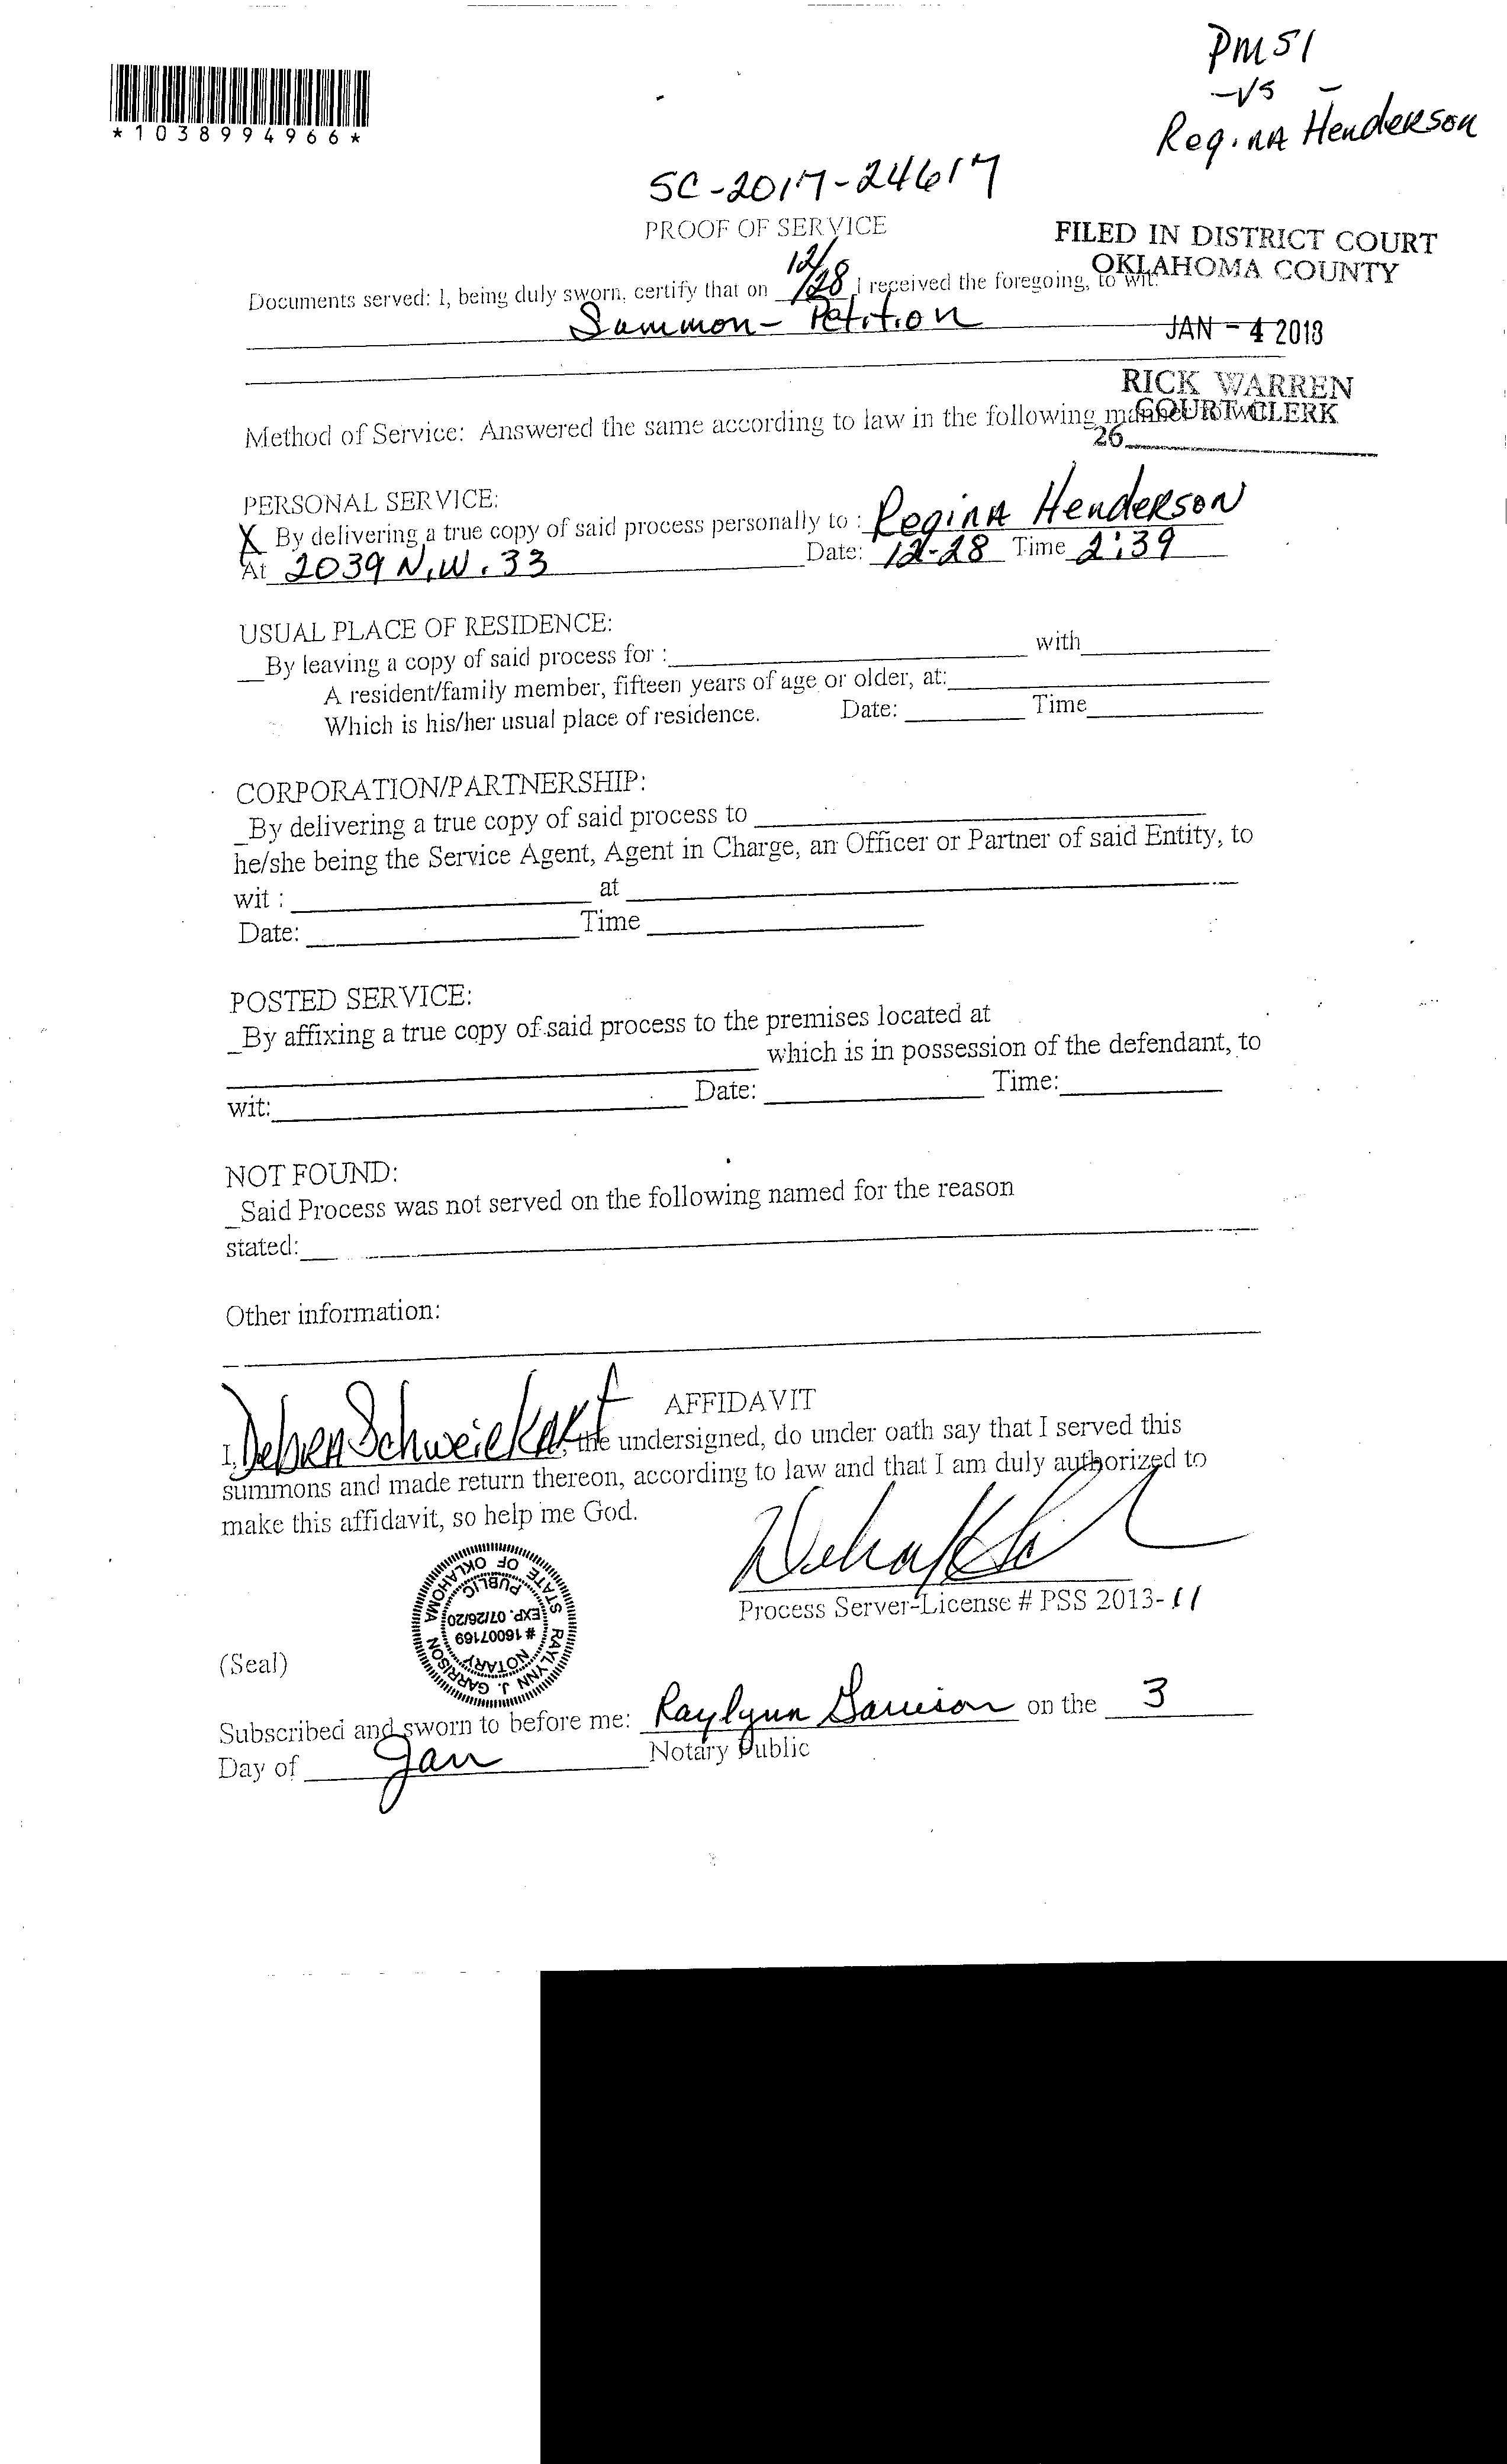 PMSI
-VS-
Regina Henderson
*1038994966*
SC-2017-24617
PROOF OF SERVICE
FILED IN DISTRICT COURT
OKLAHOMA COUNTY
Documents served: I, being duly sworn, certify that on 12/28 I received the foregoing, to wit:
Summon- Petition
JAN - 4 2018
RICK WARREN
COURT CLERK
Method of Service: Answered the same according to law in the following
26
PERSONAL SERVICE:
X By delivering a true copy of said process personally to : Regina Henderson
At 2039 N.W. 33 Date: 12-28 Time 2:39
USUAL PLACE OF RESIDENCE:
__By leaving a copy of said process for :____ with____
A resident/family member, fifteen years of age or older, at:____
Which is his/her usual place of residence. Date: ____ Time____
CORPORATION/PARTNERSHIP:
_By delivering a true copy of said process to ____
he/she being the Service Agent, Agent in Charge, an Officer or Partner of said Entity, to
wit : ____ at ____
Date: ____ Time ____
POSTED SERVICE:
_By affixing a true copy of said process to the premises located at
____ which is in possession of the defendant, to
wit:____ Date: ____ Time:____
NOT FOUND:
_Said Process was not served on the following named for the reason
stated:____
Other information:
AFFIDAVIT
I, Debra Schweickart, the undersigned, do under oath say that I served this
summons and made return thereon, according to law and that I am duly authorized to
make this affidavit, so help me God.
Process Server-License # PSS 2013-11
RAYLYNN J. GARRISON
NOTARY
# 16007169
EXP. 07/26/20
PUBLIC
STATE OF OKLAHOMA
(Seal)
Subscribed and sworn to before me: Raylynn Garrison on the 3
Notary Public
Day of Jan